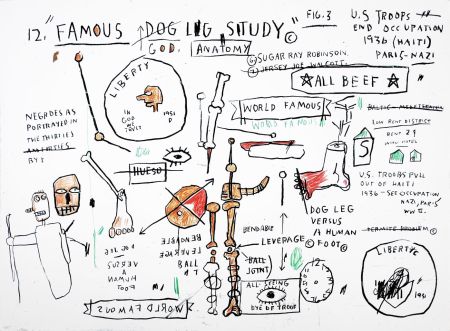 12. "FAMOUS DOG LEG STUDY"©
GOD.
ANATOMY
"FIG. 3
U.S TROOPS
END OCCUPATION
1936 (HAITI)
PARIS-NAZI
SUGAR RAY ROBINSON
JERSEY JOE WALCOTT
☆ALL BEEF☆
LIBERTY
IN
GOD
WE
TRUST
1951
WORLD FAMOUS
WORLD FAMOUS
LOW RENT DISTRICT
RENT 29
S
NEGROES AS
PORTRAYED IN
THE THIRTIES
HUESO
U.S. TROOPS PULL
OUT OF HAITI
1936 - SEE OCCUPATION
NAZI, PARIS
WW II.
DOG LEG
VERSUS
A HUMAN
FOOT©
BENDABLE
LEVERAGE
BALL
JOINT
BENDABLE
LEVERAGE
BALL
DOG LEG
VERSUS
A HUMAN
FOOT
TERMITE PROBLEM
ALL-SEEING
EYE OF PROOF
12
WORLD FAMOUS
LIBERTY
1951